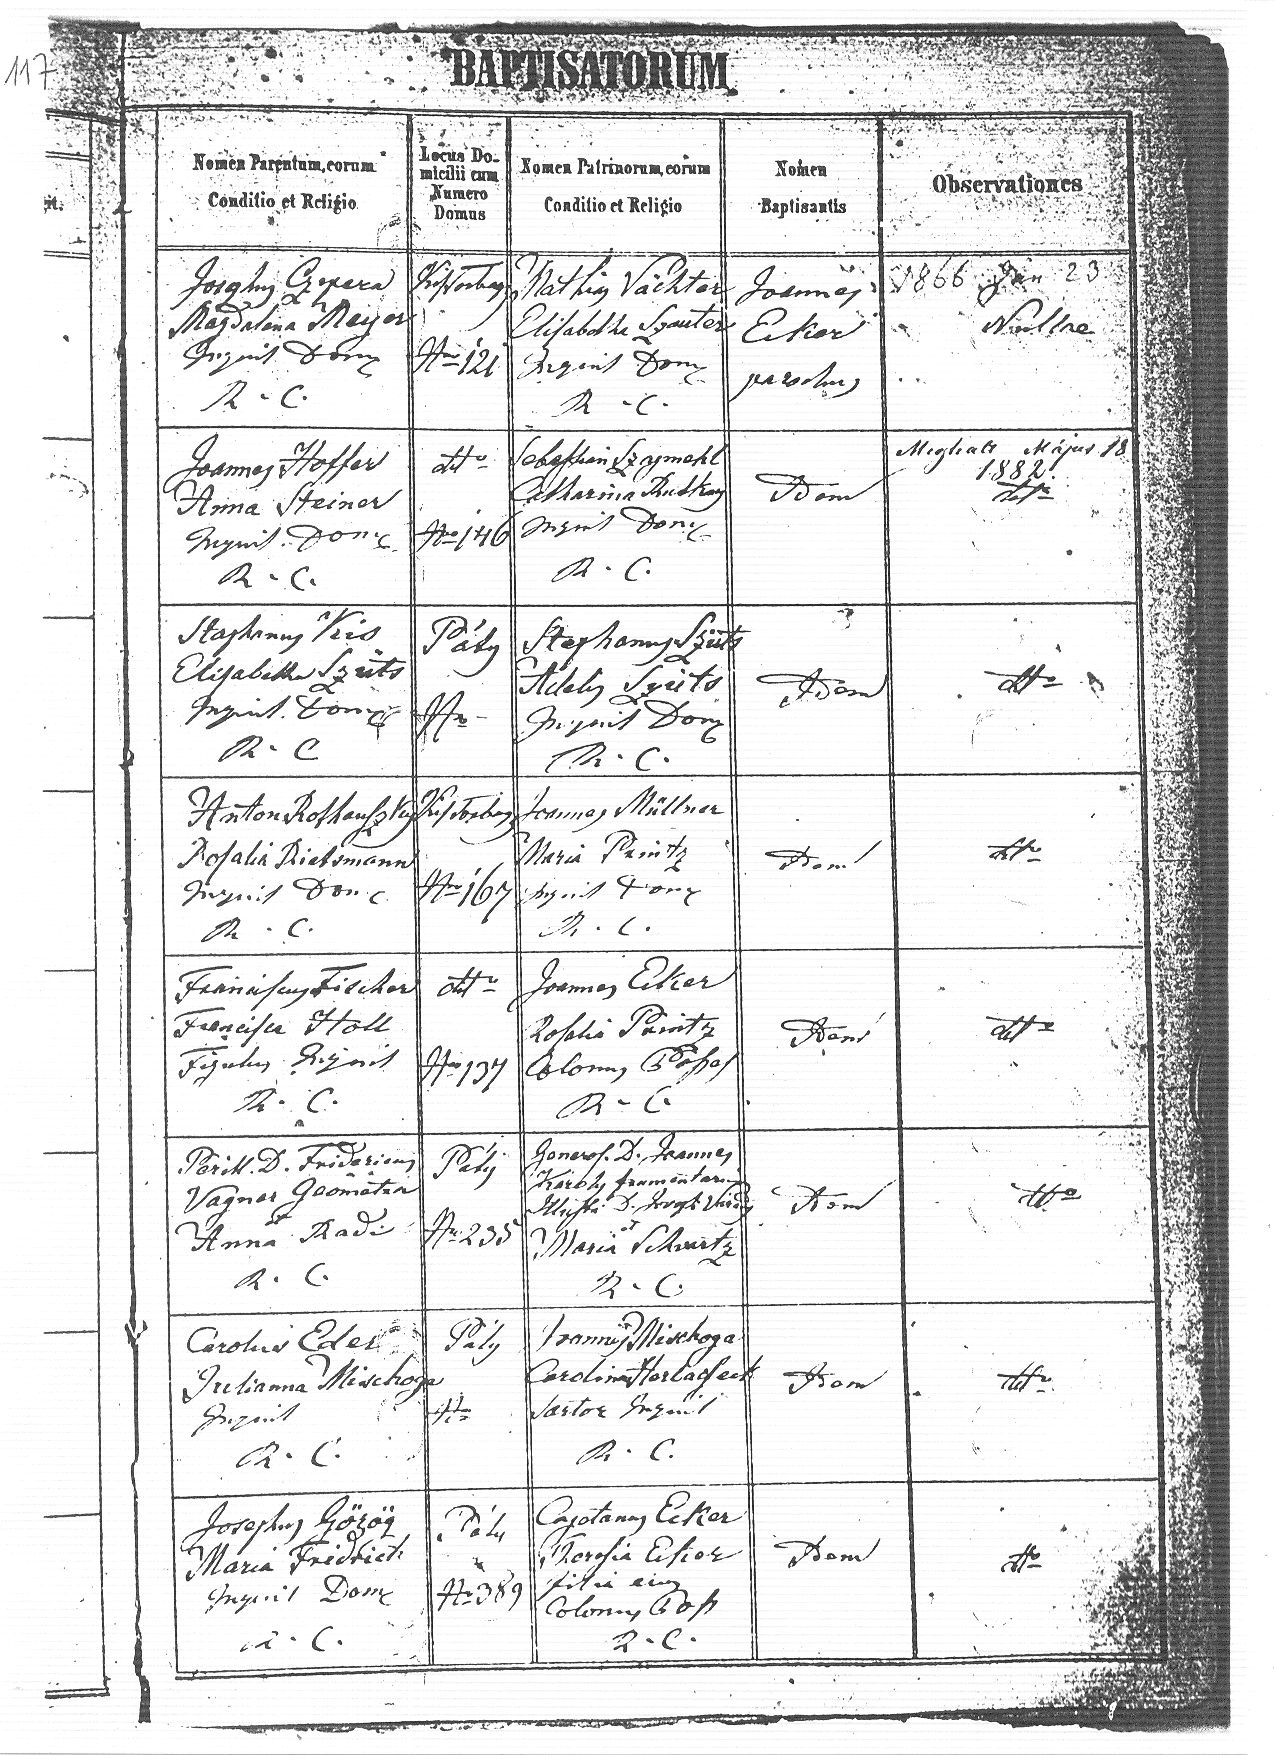 117
BAPTISATORUM
Nomen Parentum, eorum
Conditio et Religio
Locus Do-
micilii cum
Numero
Domus
Nomen Patrinorum, eorum
Conditio et Religio
Nomen
Baptisantis
Observationes
Magdalena Mayer
Inquil Dom
R. C.
Nro 121
Mathias Vächter
Elisabetha Szauter
Inquil Dom
R. C.
Joannes
Ecker
parochus
1866 Jan 23
Nullae
Joannes Hoffer
Anna Steiner
Inquil. Dom
R. C.
dtto
Nro 146
Catharina
Inquil Dom
R. C.
Idem
Meghalt Május 18
1882
dtto
Stephanus Kis
Elisabetha Szüts
Inquil. Dom
R. C
Páty
Nro -
Stephanus Szüts
Szüts
Inquil Dom
R. C.
Idem
dtto
Anton
Rosalia Rietsmann
Inquil Dom
R. C.
Nro 167
Joannes Müllner
Maria Printz
Inquil Dom
R. C.
Idem
dtto
Franciscus Fischer
Francisca Holl
Figulus Inquil
R. C.
dtto
Nro 137
Joannes Ecker
Rosalia Printz
Colonus
R. C.
Idem
dtto
Perill. D. Fridericus
Vagner Geometra
et
Anna Radi
R. C.
Páty
Nro 235
Generos. D. Joannes
Károly frumentarius
Illustr. D. Joseph
et
Maria Schvartz
R. C.
Idem
dtto
Carolus Eder
Julianna Mischoga
Inquil
R. C.
Páty
Nro
Joannes Mischoga
Carolina
Sartor Inquil
R. C.
Idem
dtto
Josephus Görög
Maria Fridrich
Inquil Dom
R. C.
Páty
Nro 389
Cajetanus Ecker
Theresia Ecker
filia ejus
Colonus
R. C.
Idem
dtto